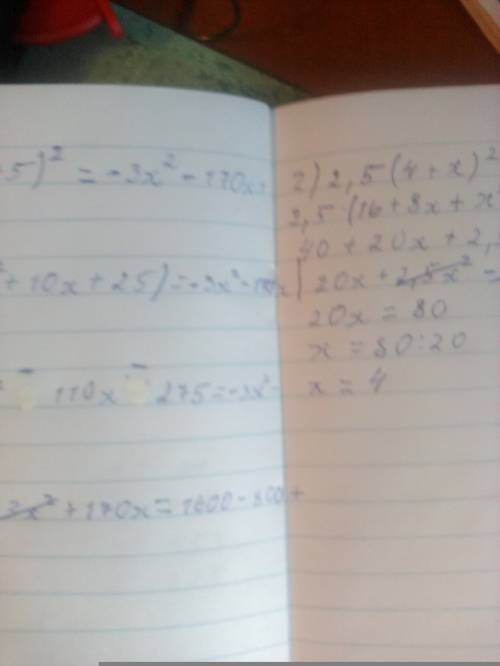 5)² = -3x² - 170x
+ 10x + 25) = -3x² -
110x - 275 = -3x²
3x² + 170x = 1600 - 800 +
2) 2,5(4+x)²
2,5(16+8x+x
40 + 20x + 2,
20x + 2,5x² =
20x = 80
x = 80:20
x = 4